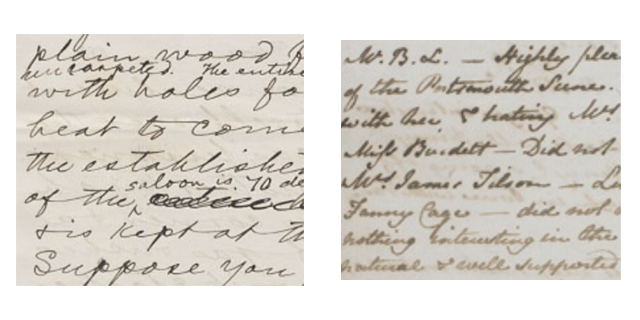 plain wood
uncarpeted. The entire
with holes fo
heat to come
the establishe
saloon is 70 de
of the
& is kept at th
Suppose you
Mr. B. L. — Highly plea
of the Portsmouth Scene.
with her, & hating Mrs
Miss Burdett — Did not
Mrs James Tilson — L
Fanny Cage — did not
nothing interesting in the
natural & well supported